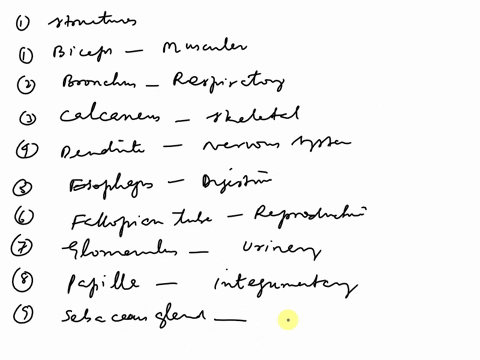 ① structures
① Biceps — Muscular
② Bronchus — Respiratory
③ Calcaneus — skeletal
④ Dendrite — nervous system
⑤ Esophagus — Digestive
⑥ Fallopian tube — Reproductive
⑦ Glomerulus — Urinary
⑧ Papille — integumentary
⑨ Sebaceous gland —